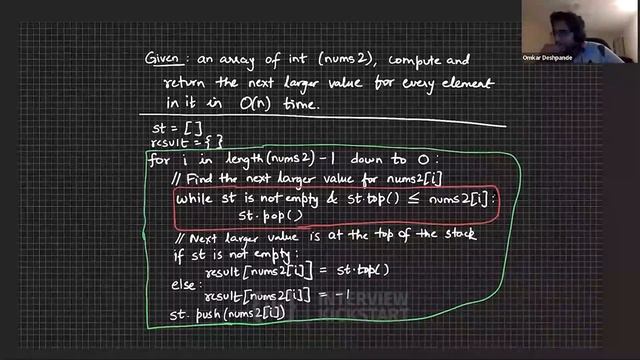 Given: an array of int (nums2), compute and
return the next larger value for every element
in it in O(n) time.
st = []
result = {}
for i in length(nums2) - 1 down to 0:
// Find the next larger value for nums2[i]
while st is not empty & st.top() ≤ nums2[i]:
st.pop()
// Next larger value is at the top of the stack
if st is not empty:
result[nums2[i]] = st.top()
else:
result[nums2[i]] = -1
st.push(nums2[i])
INTERVIEW
KICKSTART
Omkar Deshpande